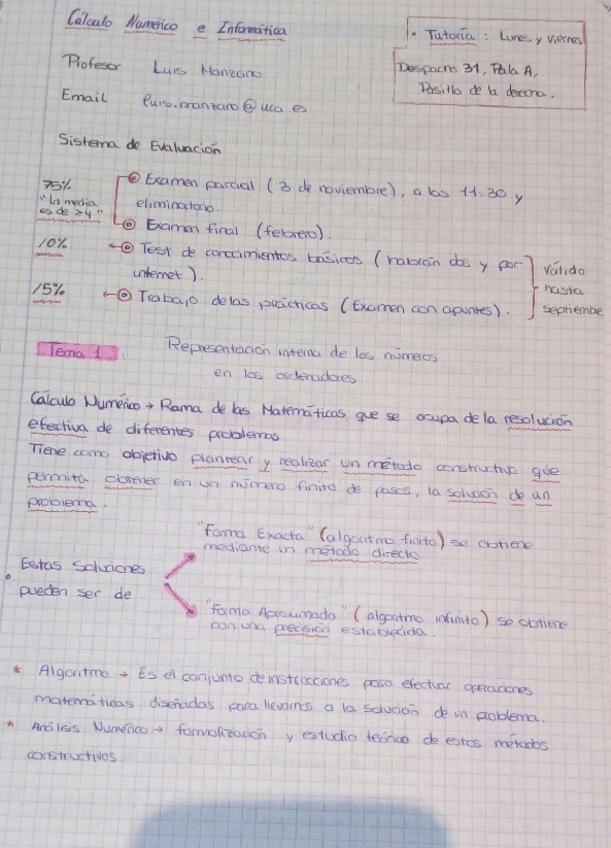 Cálculo Numérico e Informática
• Tutoría: Lunes y Viernes
Despacho 31, Pala A,
Pasillo de la derecha.
Profesor Luis Manzano
Email luis.manzano@uca.es
Sistema de Evaluación
75%
"la media es de ≥4"
Examen parcial (3 de noviembre), a las 11.30 y
eliminatorio.
Examen final (febrero).
10% Test de conocimientos básicos (habrán dos y por
internet).
15% Trabajo de las prácticas (Examen con apuntes).
válido
hasta
septiembre
Tema 1. Representación interna de los números
en los ordenadores
Cálculo Numérico → Rama de las Matemáticas que se ocupa de la resolución
efectiva de diferentes problemas
Tiene como objetivo plantear y realizar un método constructivo que
permita obtener en un número finito de pasos, la solución de un
problema.
"Forma Exacta" (algoritmo finito) se obtiene
mediante un método directo
Estas soluciones
pueden ser de
"Forma Aproximada" (algoritmo infinito) se obtiene
con una precisión establecida.
* Algoritmo → Es el conjunto de instrucciones para efectuar operaciones
matemáticas diseñadas para llevarnos a la solución de un problema.
* Análisis Numérico → formalización y estudio teórico de estos métodos
constructivos.